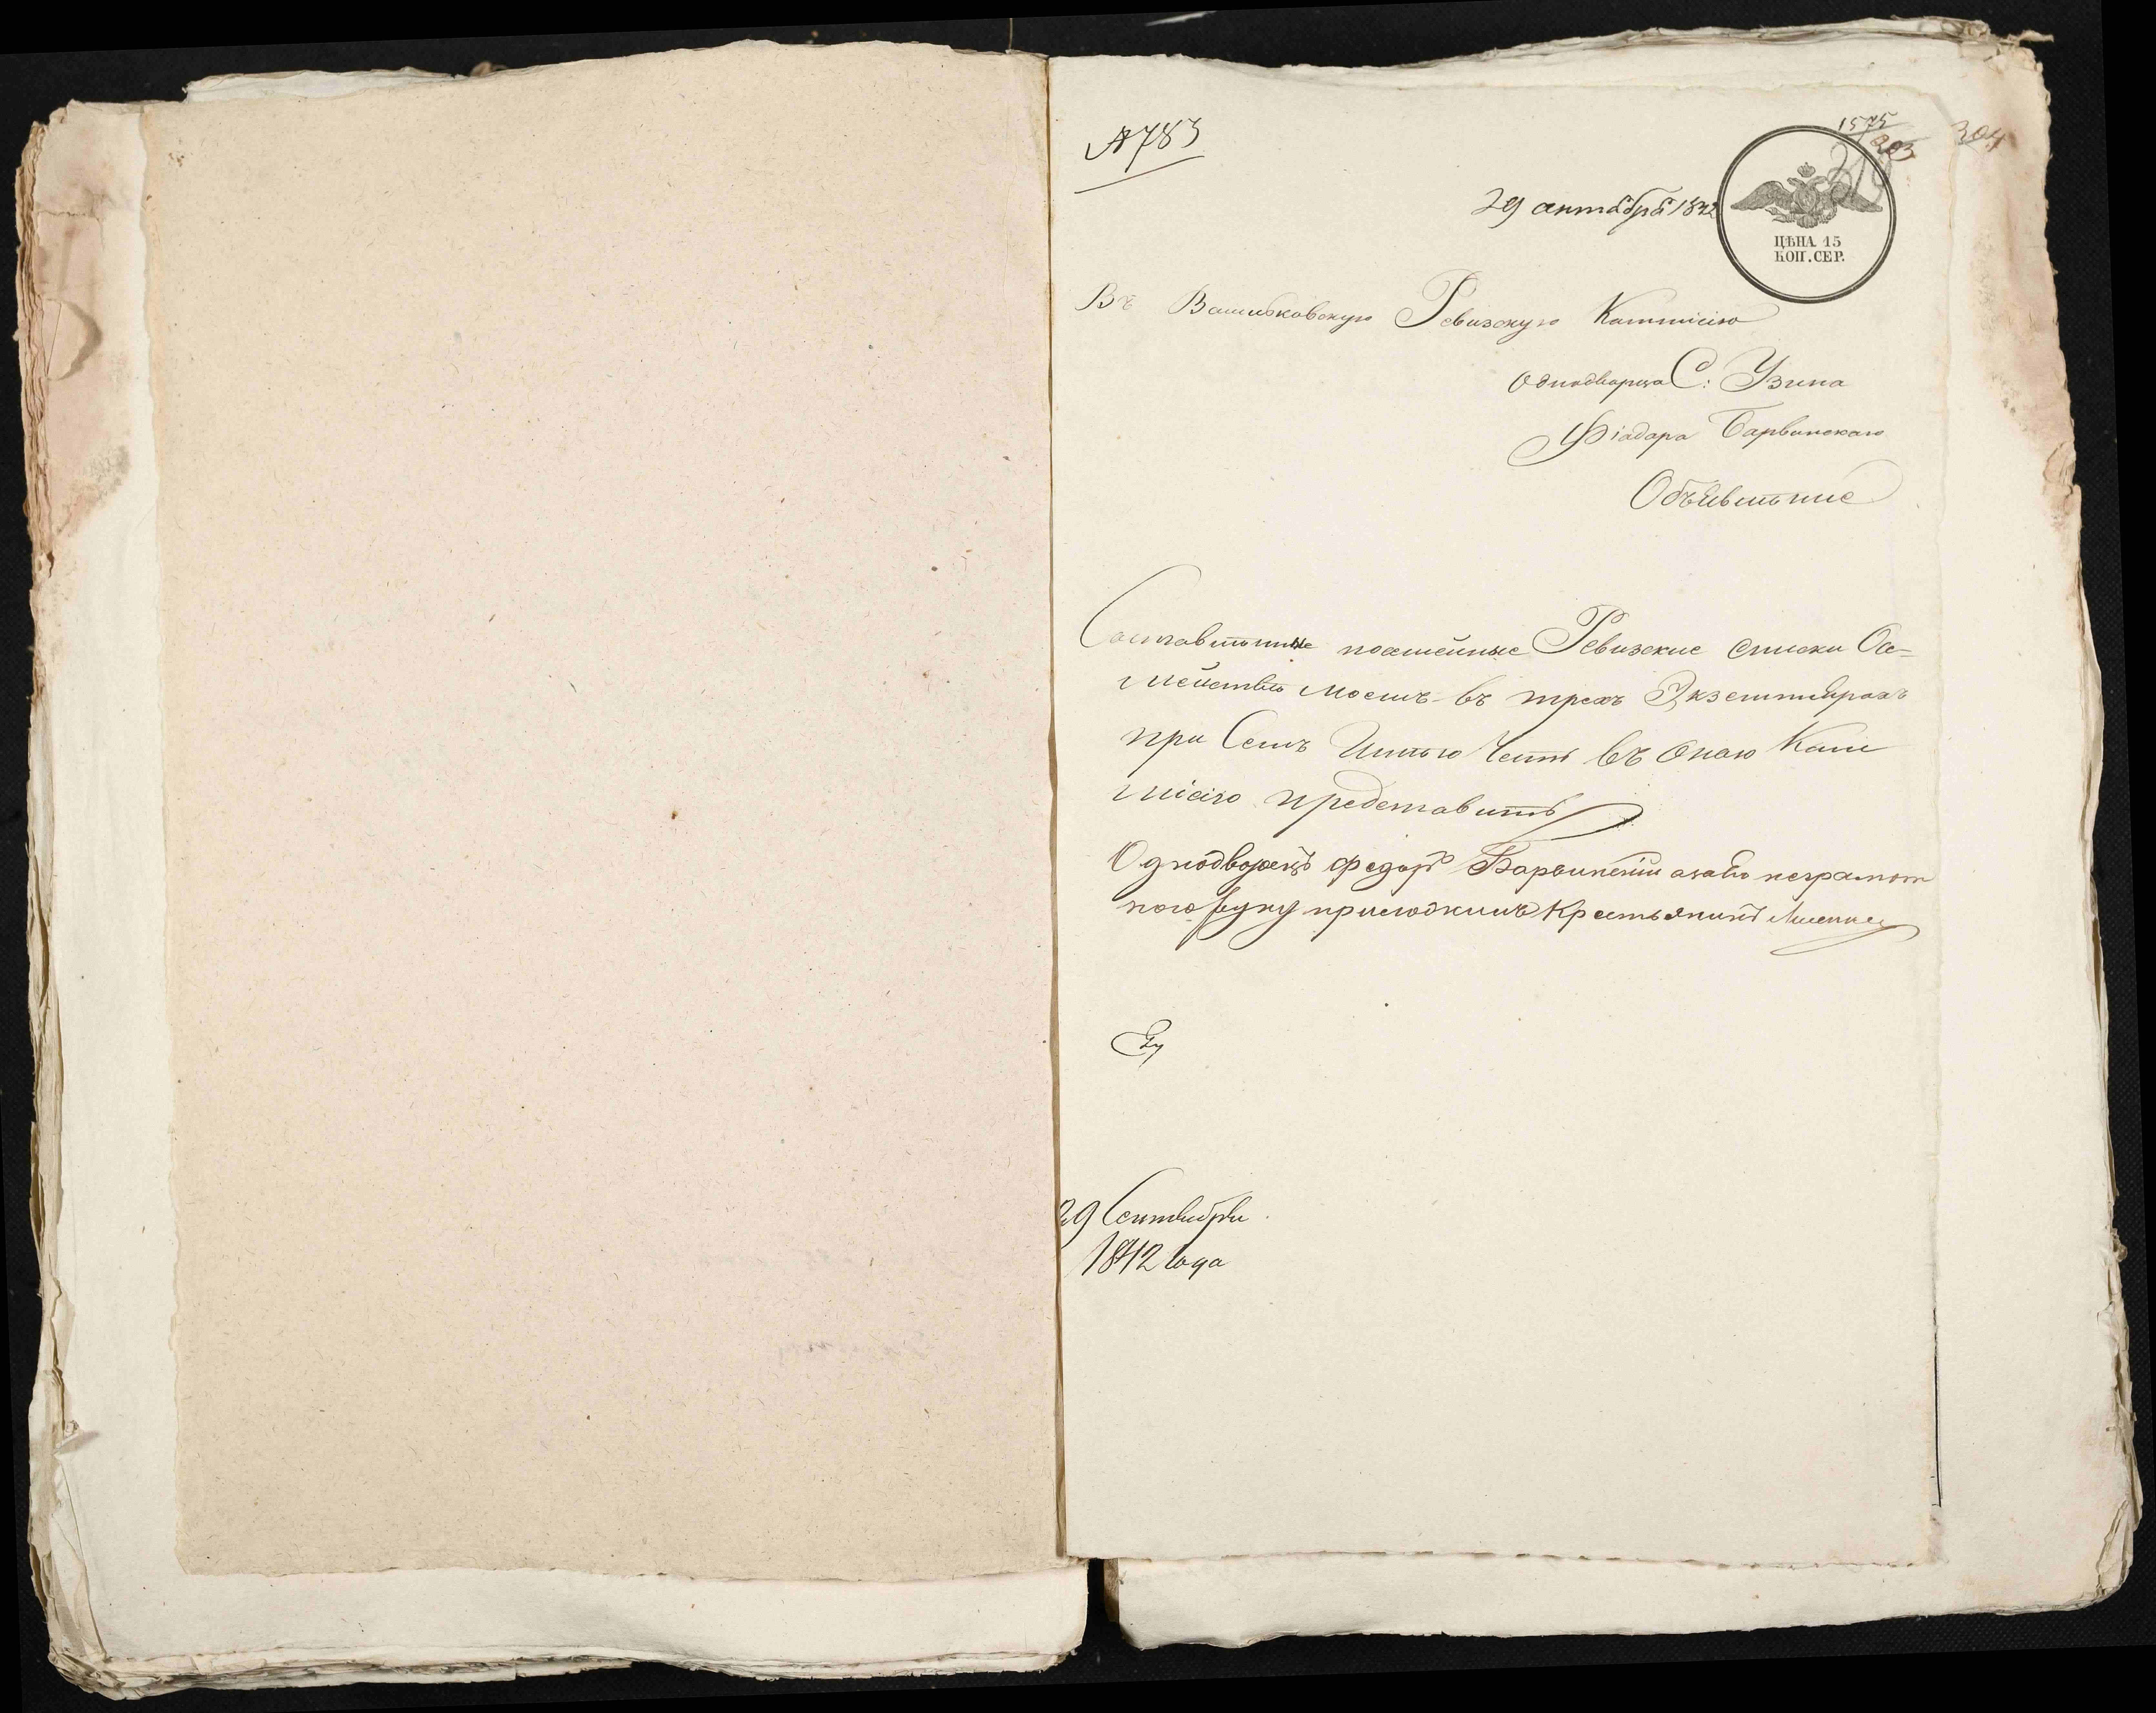 №783
1575
203
304
29 октября 1842
ЦѢНА 15
КОП. СЕР.
Въ Васильковскую Ревизскую Коммісію
Однодворца С: Узина
Фіадара Барвинскаго
Объявленіе
Составленные посемейные Ревизские списки О се-
мействѣ моемъ въ трехъ Экземплярахъ
при Семъ Имѣю Честь въ Оною Ком
мисію представить
Однодворецъ Федоръ Барвинскій а за его неграмот
ного руку приложилъ Крестьянинъ
29 Сентября
1842 года